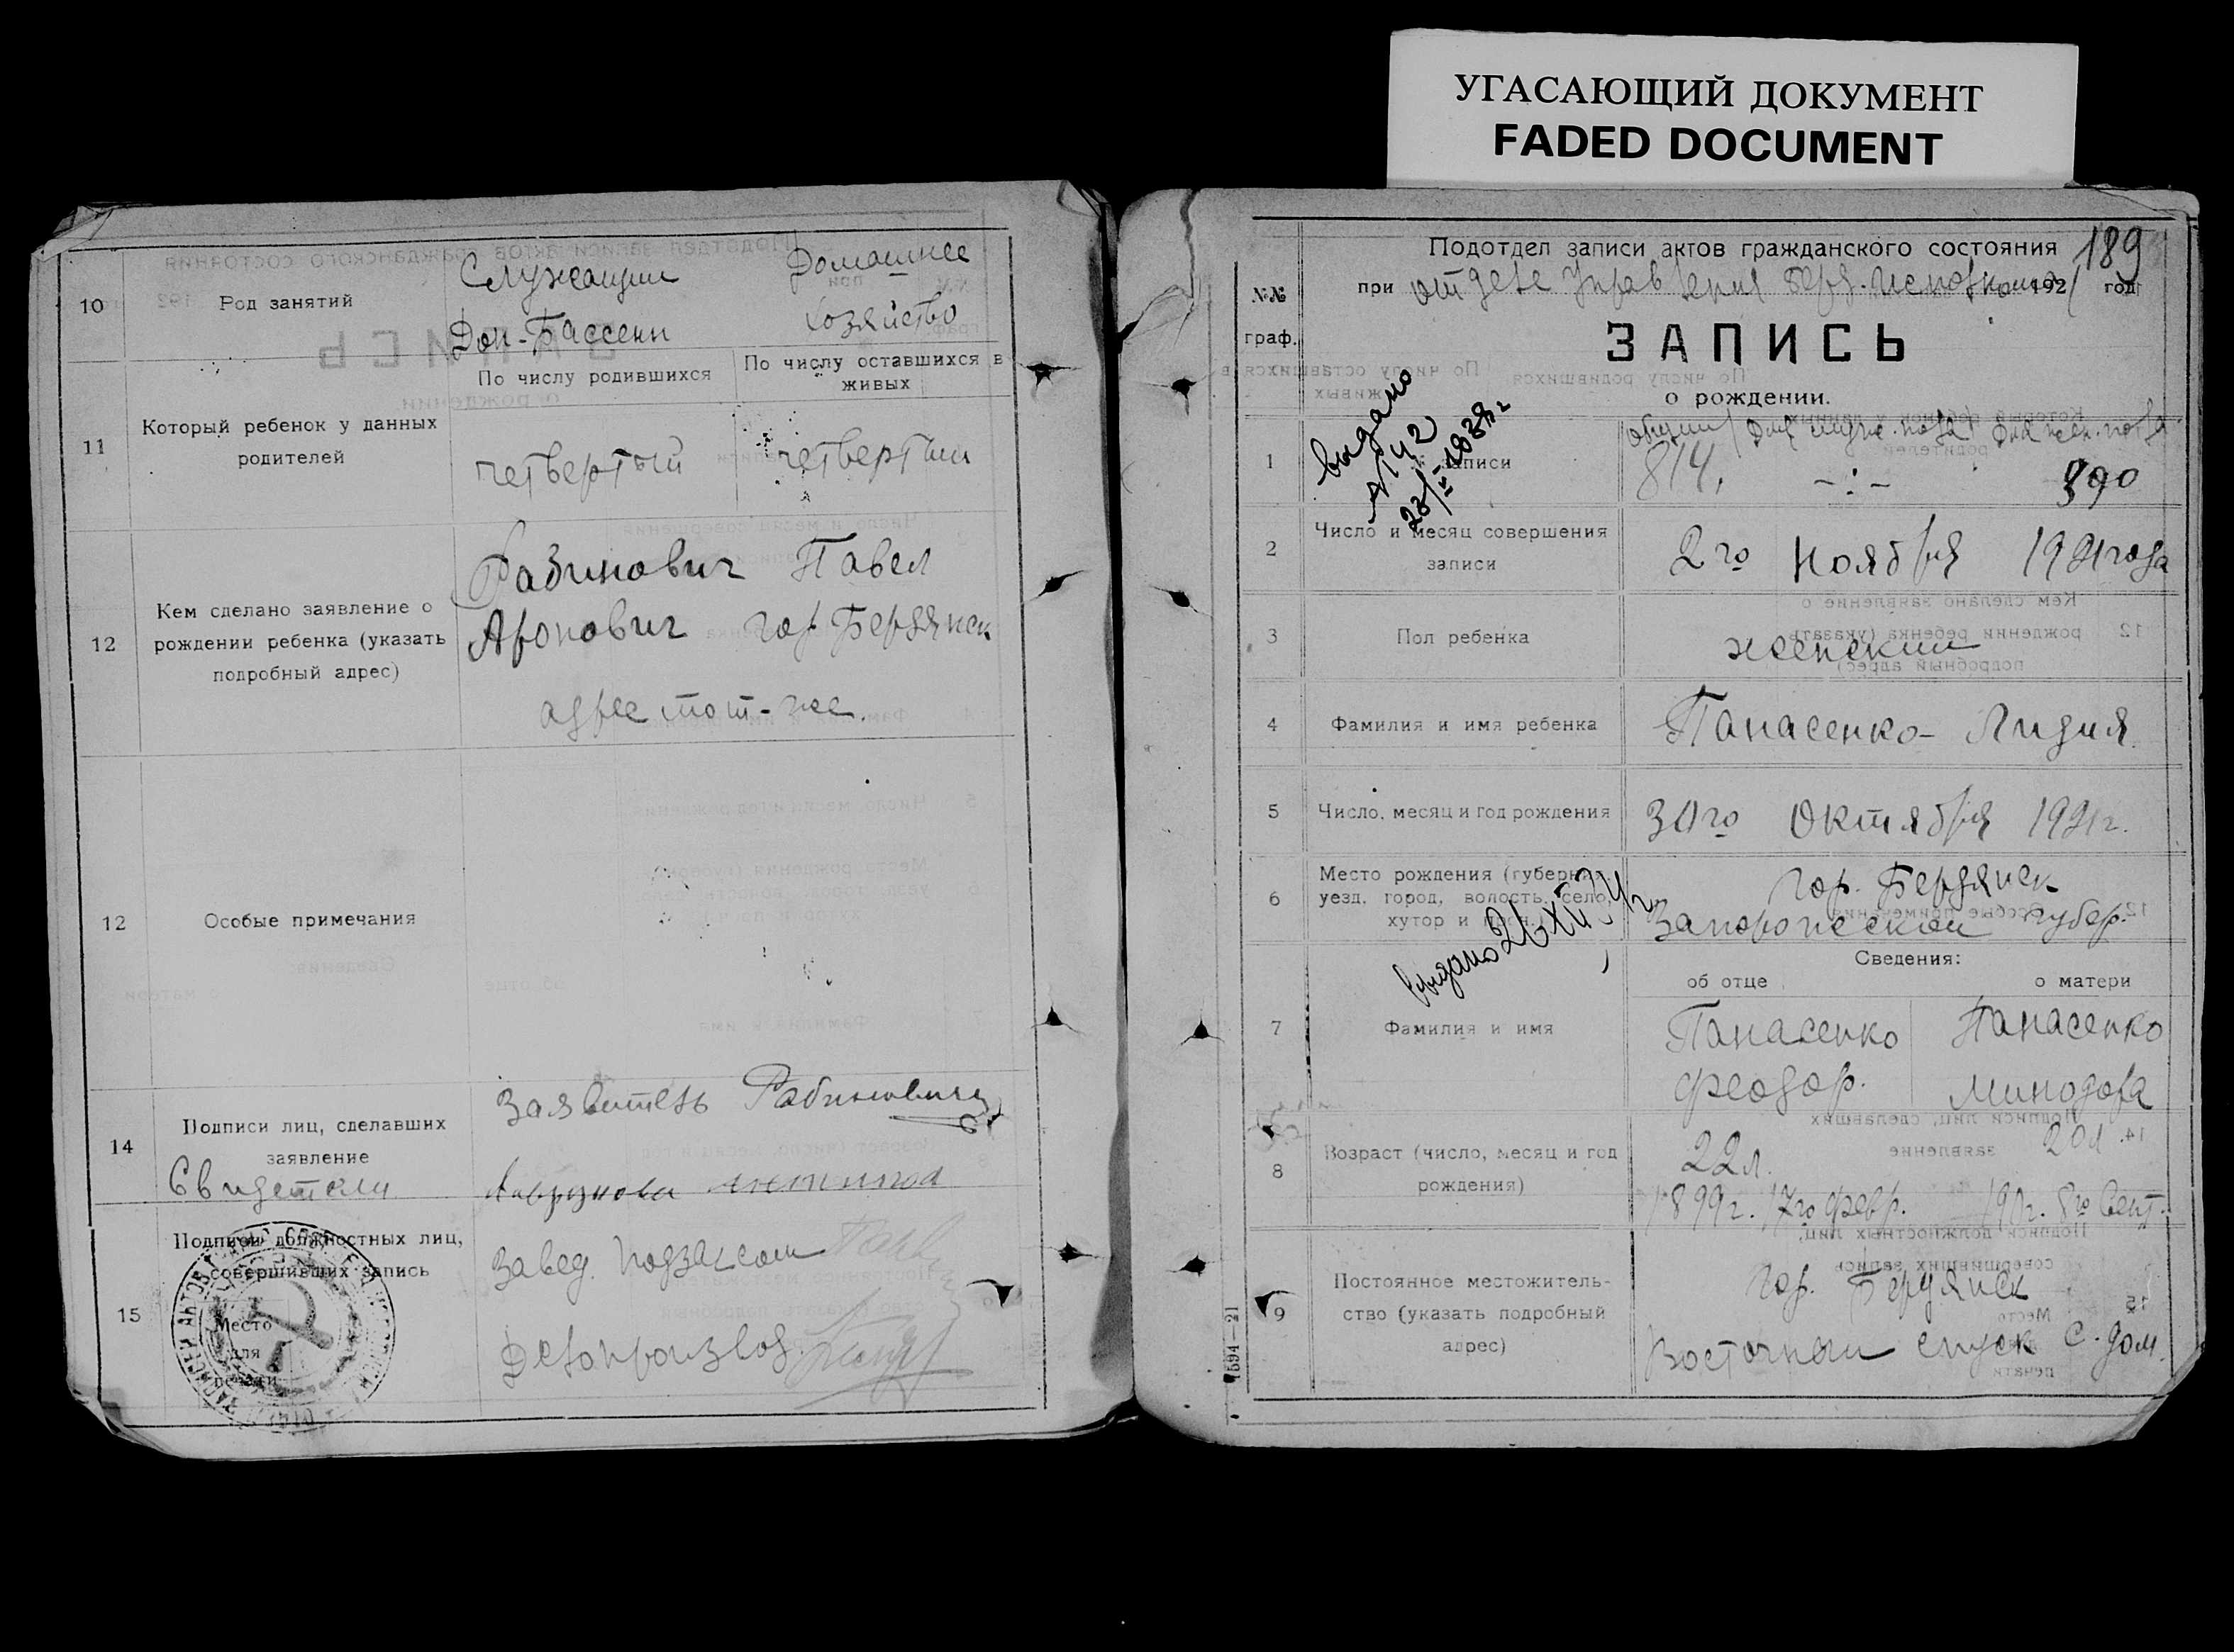 УГАСАЮЩИЙ ДОКУМЕНТ
FADED DOCUMENT
10
Род занятий
Служащий
Дон-Бассейн
Домашнее
хозяйство
11
Который ребенок у данных
родителей
По числу родившихся
По числу оставшихся в
живых
четвертый
четвертый
12
Кем сделано заявление о
рождении ребенка (указать
подробный адрес)
Рабинович Павел
Аронович гор. Бердянск
адрес тот-же.
12
Особые примечания
14
Подписи лиц, сделавших
заявление
Свидетели
Заявитель Рабинович
15
Подписи должностных лиц,
совершивших запись
Место
для
печати
Завед. подзагсом
Делопроизвод.
189
Подотдел записи актов гражданского состояния
при отделе Управления Берд. Исполкома 1921 год
№№
граф.
ЗАПИСЬ
о рождении.
1
№ записи
выдано
№ 142
общий для мужс. пола для жен. пола
814. -:- 390
2
Число и месяц совершения
записи
2го Ноября 1921 года
3
Пол ребенка
женский
4
Фамилия и имя ребенка
Панасенко- Лидия
5
Число, месяц и год рождения
30го Октября 1921г.
6
Место рождения (губерния,
уезд, город, волость, село,
хутор и проч.)
гор. Бердянск
Запорожской губер.
выдано 26
Сведения:
об отце
о матери
7
Фамилия и имя
Панасенко
Феодор.
Панасенко
Минодора
8
Возраст (число, месяц и год
рождения)
22л.
1899г. 17го февр.
20л
8го Сент.
9
Постоянное местожитель-
ство (указать подробный
адрес)
гор. Бердянск
Восточный спуск с. дом.
1594—21